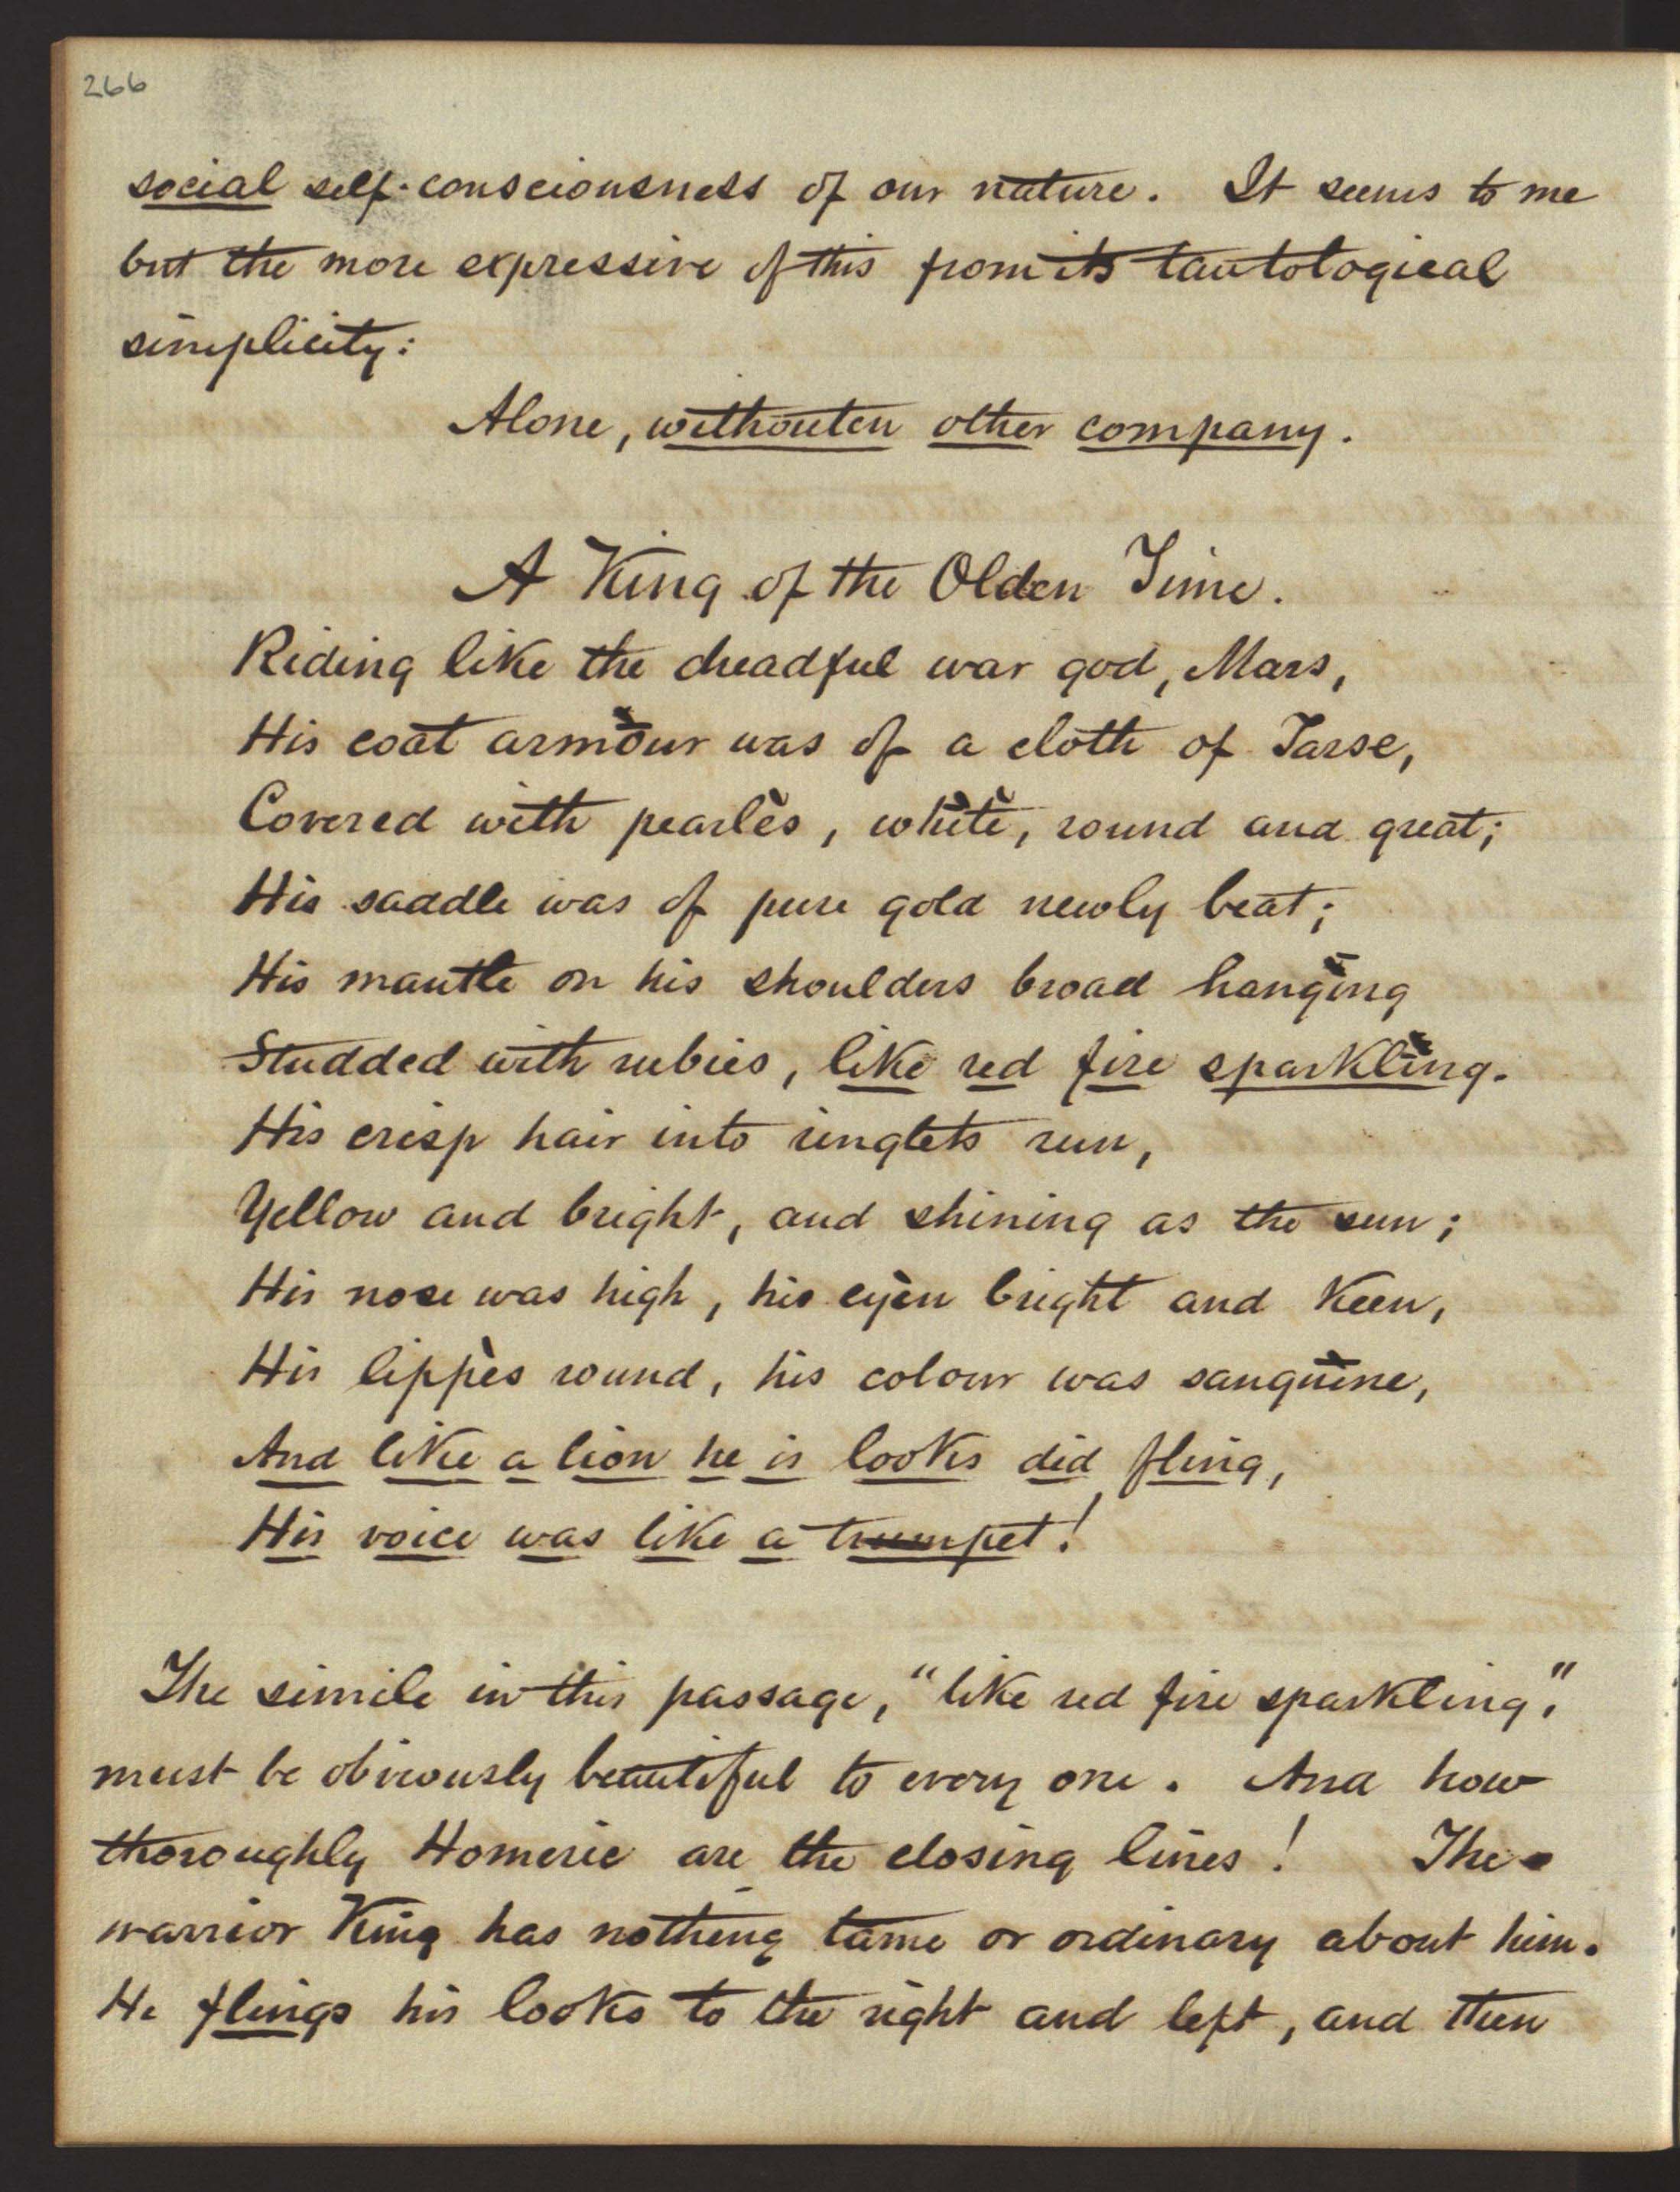 266
social self-consciousness of our nature. It seems to me
but the more expressive of this from its tautological
simplicity:
Alone, withouten other company.
A King of the Olden Time.
Riding like the dreadful war god, Mars,
His coat armòur was of a cloth of Tarse,
Covered with pearlès, whìtè, round and great;
His saddle was of pure gold newly beat;
His mantle on his shoulders broad hangìng
Studded with rubies, like red fire sparklìng.
His crisp hair into ringlets run,
Yellow and bright, and shining as the sun;
His nose was high, his eyèn bright and keen,
His lippès round, his colour was sanguìne,
And like a lion he is looks did fling,
His voice was like a trumpet!
The simile in this passage, "like red fire sparkling",
must be obviously beautiful to every one. And how
thoroughly Homeric are the closing lines! The
warrior King has nothing tame or ordinary about him.
He flings his looks to the right and left, and then